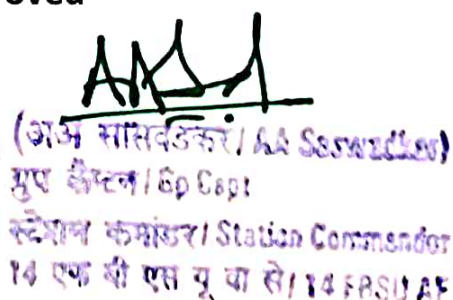 oved
(अअ सासवडकर / AA Saswadkar)
ग्रुप कैप्टन / Gp Capt
स्टेशन कमांडर / Station Commander
14 एफ बी एस यू वा से / 14 FBSU AF